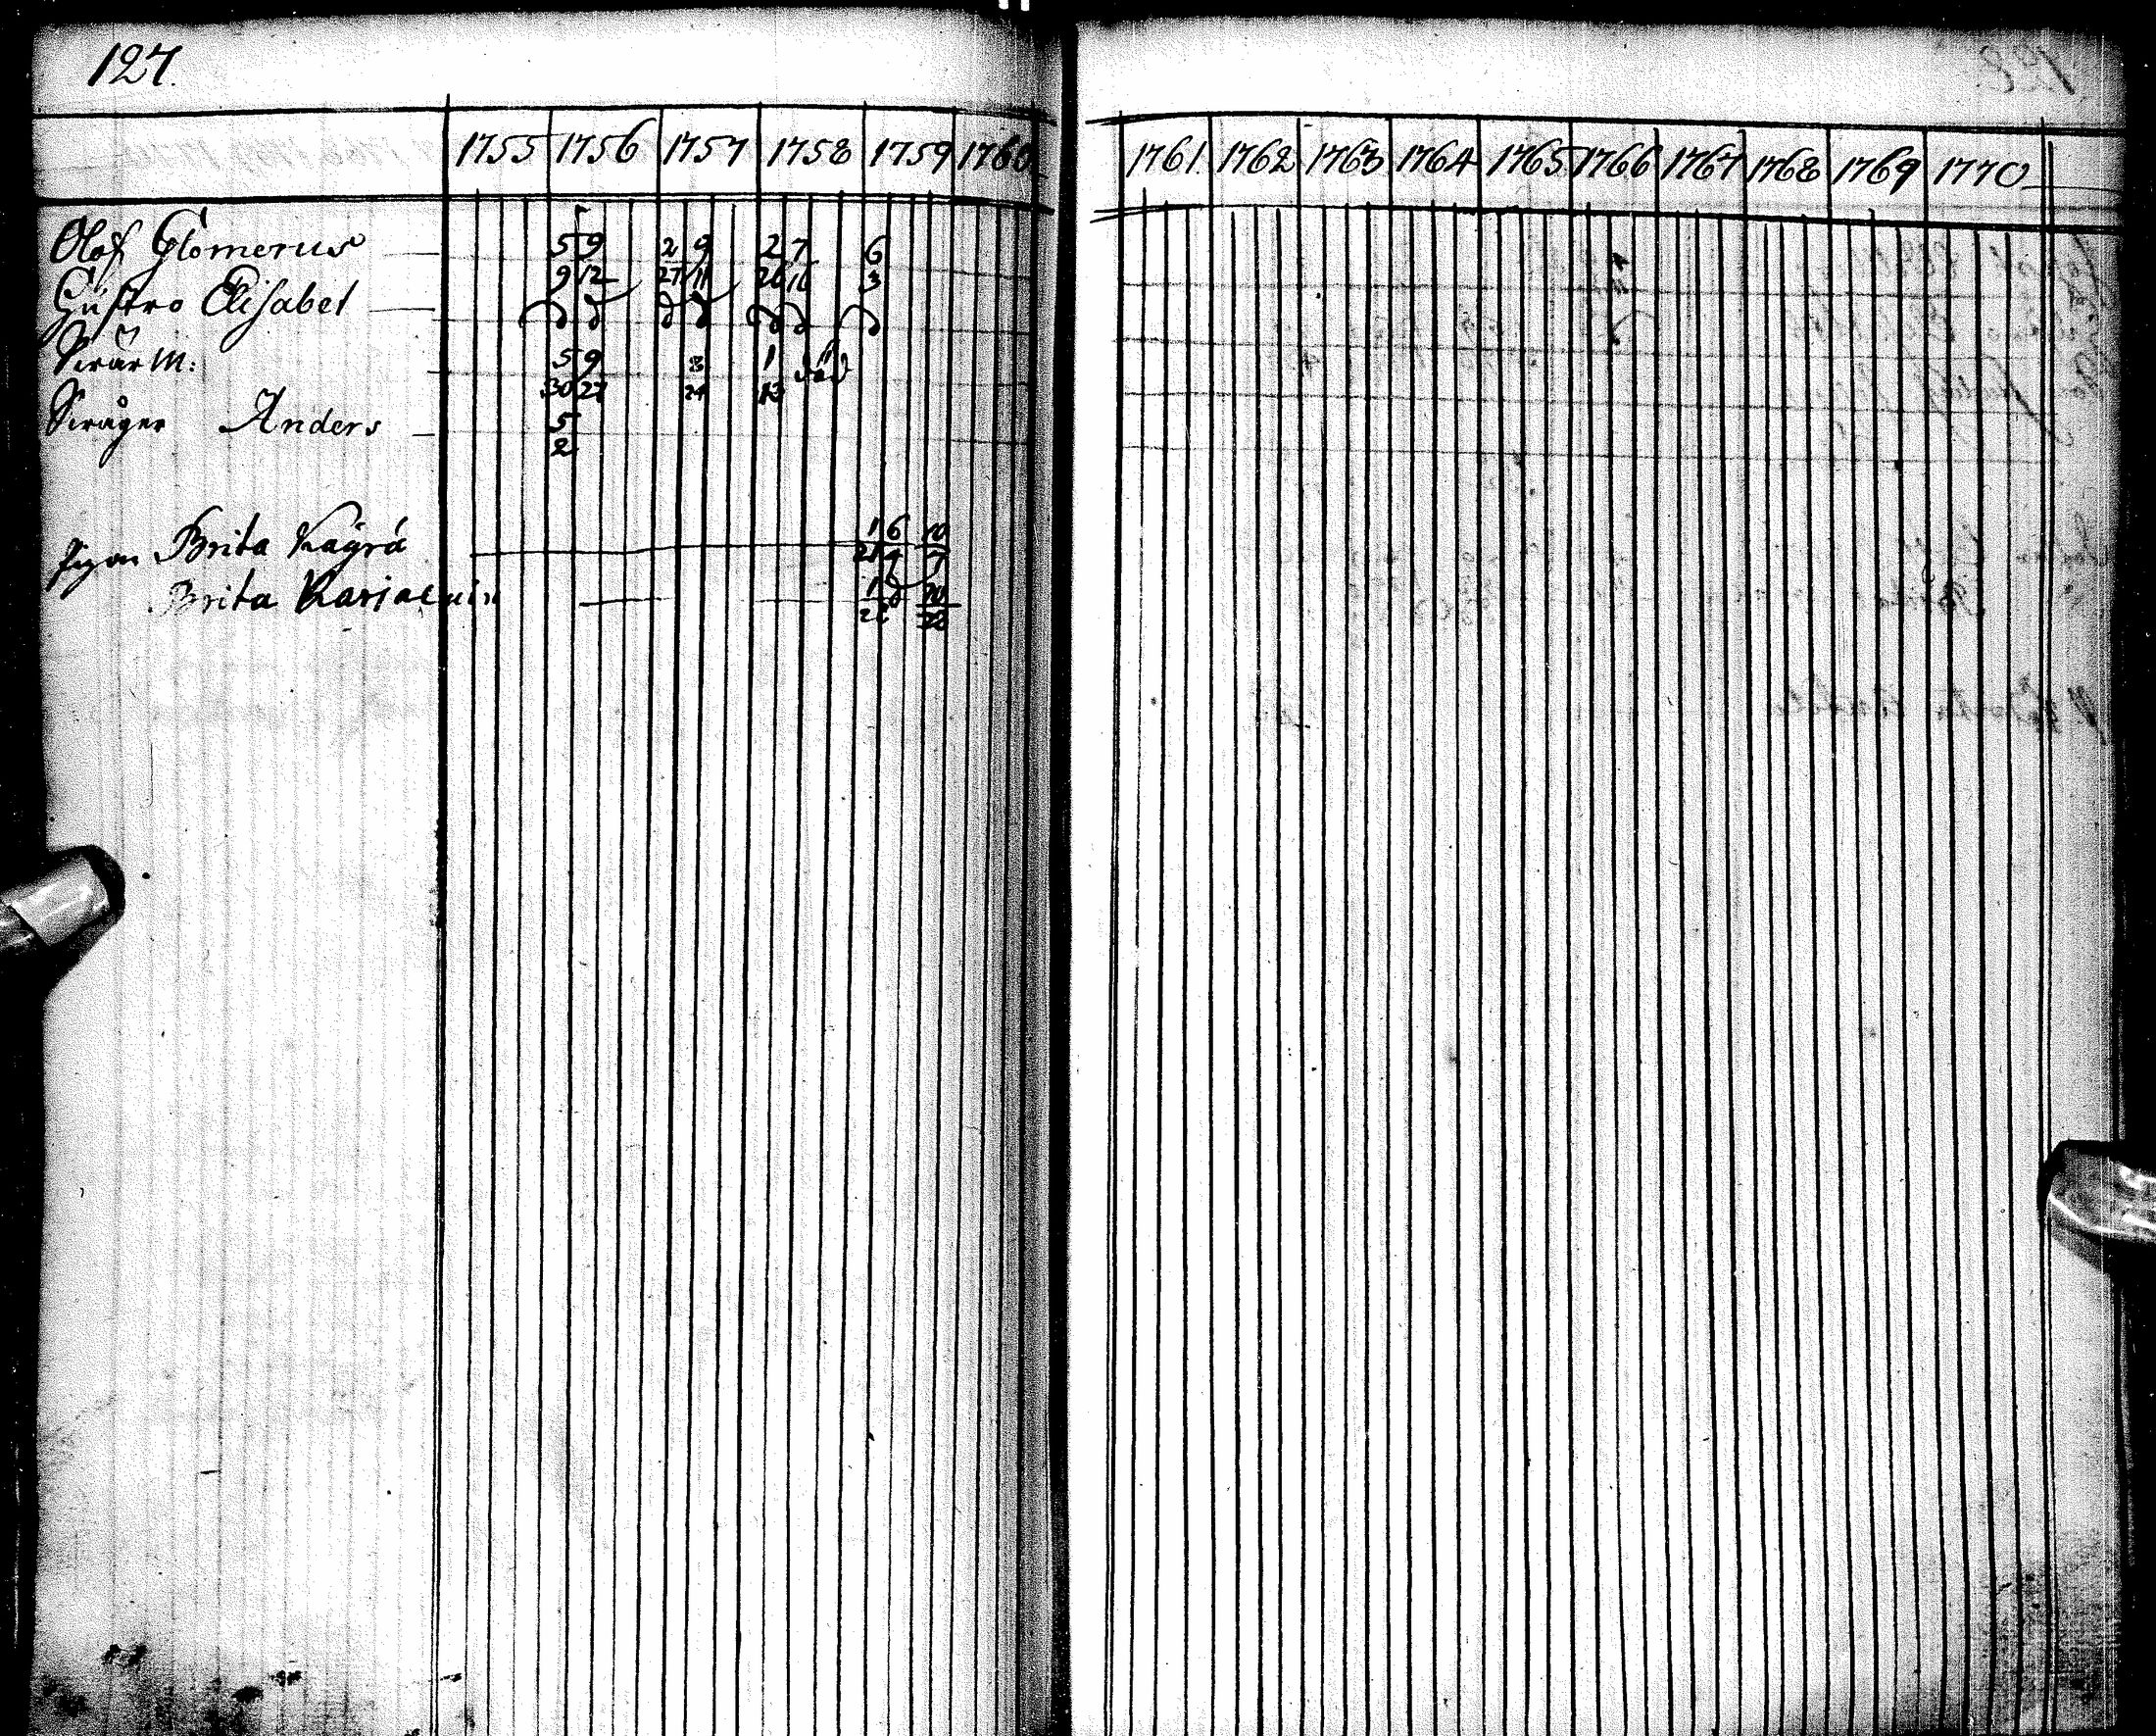 127.
1755 1756 1757 1758 1759 1760
1761 1762 1763 1764 1765 1766 1767 1768 1769 1770
Olof Glomerus 5 9 2 9 2 7 6
9 12 27 11 26 16 3
Hustro Elisabet
Swär M: 5 9 8 1 död
30 27 24 13
Swåger Anders 5
2
Pigan Brita Kågrå 1 6 10
21 4 7
Brita Karja 1 10